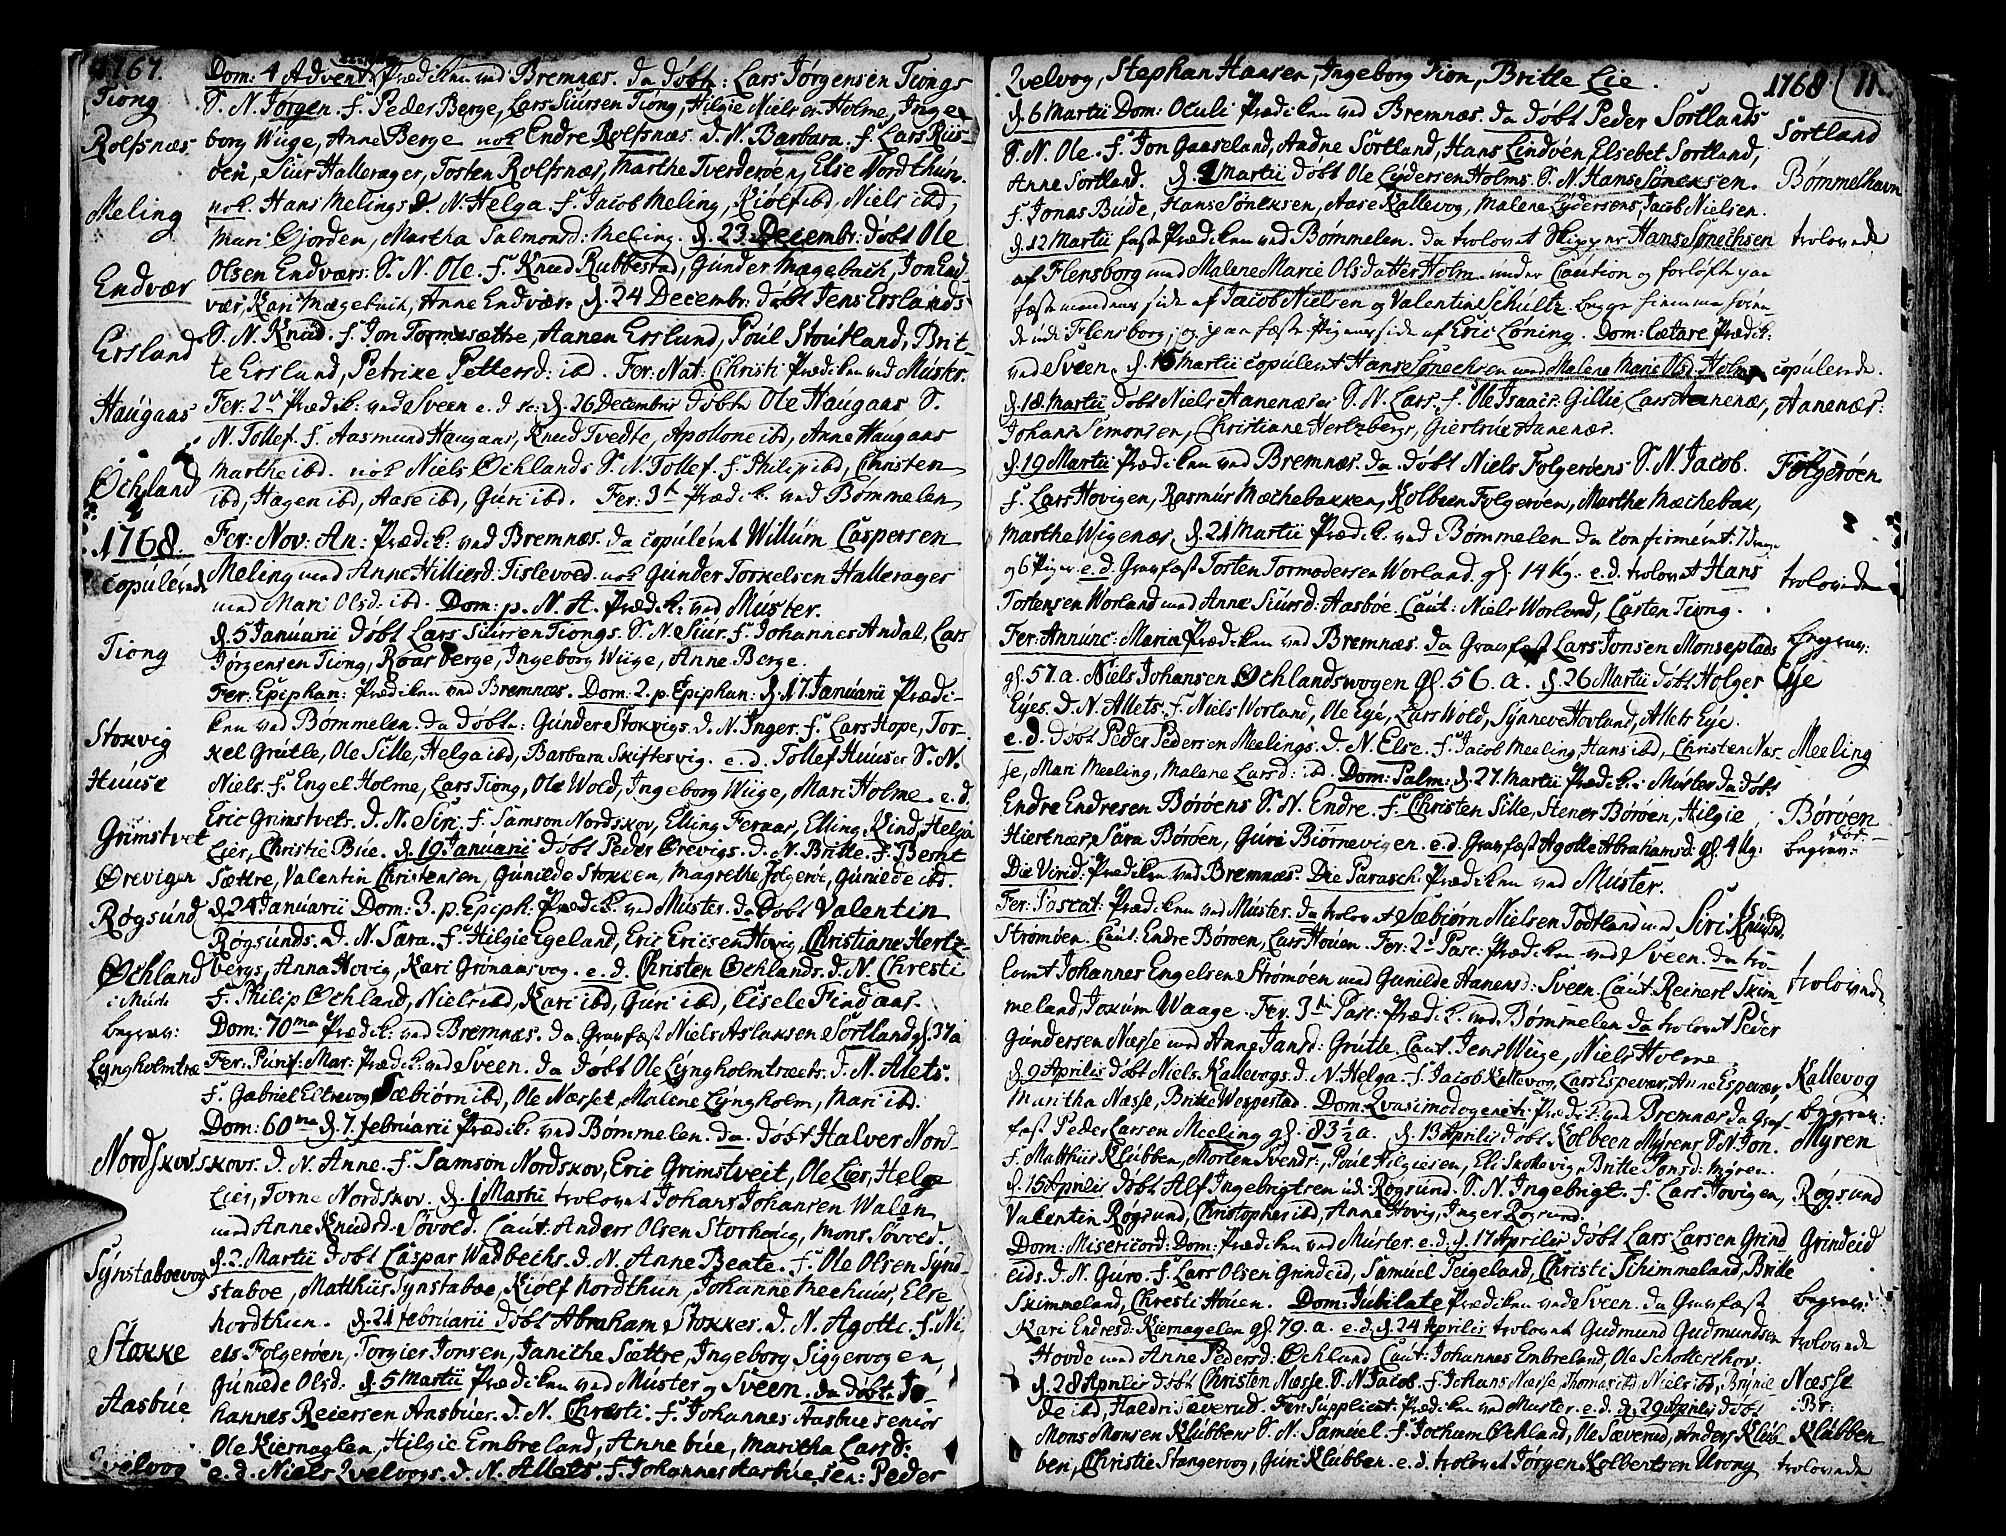 1767.
Dom: 4 Advent Prædiken ved Bremnæs. da döbt: Lars Jörgensen Tiongs
Tiong
S. N. Jörgen. f. Peder Berge, Lars Siursen Tiong, Hilgie Nielsen Holme, Inge
Rolfsnæs borg Wiige, Anne Berge nok Endre Rolfsnæs. d. N. Barbara. f. Lars Rus-
öen, Siur Hallerager, Tosten Rolfsnæs, Marthe Tverderöen, Else Nordthun.
Meling nok Hans Melings d. N. Helga. f. Jacob Meling, Kiölf ibd, Niels ibd,
Mari Gjorden, Martha Salmonsd: Meling. d. 23 Decembr: döbt Ole
Endvær Olsen Endværs: S. N. Ole. f. Knud Rubbestad, Gunder Mægebach, Jon End
vær, Kari Mægebach, Anne Endvær. d. 24 Decembr: döbt Jens Erslands
Ersland S. N. Knud. f. Jon Tormesættre, Aanen Ersland, Poul Stoutland, Brit-
te Ersland, Petrike Pettersd: ibd. Fer: Nat: Christi Prædiken ved Muster.
Haugaas Fer: 2 Prædik: ved Sveen e.d. d. 26 Decembris döbt Ole Haugaas S.
N. Tollef. f. Aasmund Haugaas, Knud Tvedte, Apollone ibd, Anne Haugaas
Öchland Marthe ibd. nok Niels Öchlands S. N. Tollef. f. Philip ibd, Christen
ibd, Hagen ibd, Aase ibd, Guri ibd. Fer: 3 Prædik: ved Bömmelen
1768. Fer: Nov: An: Prædik: ved Bremnæs. da copuleret Willum Caspersen
copulerede Meling med Anne Hilliersd. Tislevold. nok Gunder Torkelsen Hallerager
med Mari Olsd. ibd. Dom: p. N. A. Prædik: ved Muster.
Tiong d. 5 Januarii döbt Lars Siursen Tiongs. S. N. Siur. f. Johannes Andal, Lars
Jörgensen Tiong, Roar Berge, Ingeborg Wiige, Anne Berge.
Fer: Epiphan: Prædiken ved Bremnæs. Dom: 2. p. Epiphan: d. 17 Januarii Prædi-
Stokvig ken ved Bömmelen. da döbt: Gunder Stokvigs. d. N. Inger. f. Lars Hope, Tor
kel Grutle, Ole Sille, Helga ibd, Barbara Skiftesvig. e.d. Tollef Huuser S. N.
Huuse Niels. f. Engel Holme, Lars Tiong, Ole Wold, Ingeborg Wiige, Mari Holme. e.d.
Grimstvet Eric Grimstvets. d. N. Siri. f. Samson Nordskov, Elling Feraas, Elling Kind, Helga
Lier, Christie Bue. d. 19 Januarii döbt Peder Örevigs. d. N. Britte. f. Bernt
Örevigen Sættre, Valentin Christensen, Gunilde Stokken, Magrethe Folgerö, Gunilde ibd.
Rögsund d. 24 Januarii Dom: 3. p. Epiph: Prædik: ved Muster. da döbt Valentin
Rögsunds. d. N. Sara. f. Hilgie Egeland, Eric Ericsen Hovig, Christiane Hertz-
Öchland bergs, Anna Hovig, Kari Grönaasvog. e.d. Christen Öchlands. d. N. Chresti
f. Philip Öchland, Niels ibd, Kari ibd, Guri ibd, Eisele Findaas.
begrav: Dom: 70ma Prædik: ved Bremnæs. da Gravfæst Niels Aslaksen Sortland gl. 37 a
Lyngholmtræ Fer: Purif: Mar: Prædik: ved Sveen. da döbt Ole Lyngholmtræets. d. N. Alets.
f. Gabriel Eltrevog, Sæbiörn ibd, Ole Næsset, Malene Lyngholm, Mari ibd.
Dom: 60ma d. 7. februarii Prædik: ved Bömmelen. da döbt Halver Nord-
Nordskov skovs. d. N. Anne. f. Samson Nordskov, Eric Grimstveit, Ole Lier, Helge
Lier, Torne Nordskov. d. 1 Martii trolovet Johans Johansen Walen
med Anne Knudsd. Sövold. Caut: Anders Olsen Storhoug, Mons Sövold.
Synstaboevog d. 2. Martii döbt Caspar Wadbechs. d. N. Anne Beate. f. Ole Olsen Synd-
staboe, Matthiis Synstaboe, Kiölf Nordthun, Johanne Meehuus, Else
Nordthun. d. 21 februarii döbt Abraham Stokkes. d. N. Agotte. f. Ni
Stokke els Folgeröen, Torgier Jonsen, Janithe Sættre, Ingeborg Siggervogen,
Gunilde Olsd: d. 5 Martii Prædiken ved Muster og Sveen. da döbt Jo
Aasbue hannes Reiersen Aasbues. d. N. Chresti. f. Johannes Aasbue senior
Ole Kiernaglen, Hilgie Embreland, Anne bue, Maritha Larsd:
Qvelvog e.d. Niels Qvelvogs. d. N. Allets. f. Johannes Aasbue sen: Peder
Qvelvog, Stephan Hansen, Ingeborg Tion, Britte Lie. 1768 (11.
d. 6 Martii Dom: Oculi Prædiken ved Bremnæs. da döbt Peder Sortlands Sortland
S. N. Ole. f. Jon Gaaseland, Aadne Sortland, Hans Lindöen Elsebet Sortland,
Anne Sortland. d. Martii döbt Ole Lydersen Holms. S. N. Hans Söncksen. Bømmelhavn
f. Jonas Bude, Hans Sönksen, Aase Kallevog, Malene Lydersens, Jacob Nielsen.
d. 12 Martii fast Prædiken ved Bømmelen. da trolovet Skipper Hans Sönechsen trolovede
af Flensborg med Malene Marie Olsdatter Holm under Caution og forløfte paa
fæstemandens side af Jacob Nielsen og Valentin Schultz begge hiemmehören-
de udi Flensborg, og paa fæstepigens side af Eric Löning. Dom: Lætare Prædik:
ved Sveen. d. 15 Martii copuleret Hans Sönechsen med Malene Marie Olsd. Holm copulerede.
d. 18. Martii döbt Niels Aanenæses S. N. Lars. f. Ole Isaacs. Gillie, Lars Aanenæs, Aanenæs:
Johans Simonsen, Christiane Hertzbergs, Giertrue Aanenæs.
d. 19 Martii Prædiken ved Bremnæs. da döbt Niels Folgeröens S. N. Jacob. Folgeröen
f. Lars Hovigen, Rasmus Mæchebakken, Kolbeen Folgeröen, Marthe Mæchebak,
Marthe Wigenæs, d. 21 Martii Prædik: ved Bømmelen da confirmeret 7 drenge
og 6 Piger e.d. Gravfæst Tosten Tormodersen Worland. gl. 14 Ug: e.d. trolovet Hans trolovede
Tostensen Worland med Anne Siursd: Aasböe. Caut: Niels Worland, Casten Tiong.
Fer: Annunc: Maria Prædiken ved Bremnæs. da Gravfæst Lars Jonsen Monseplads begrav:
gl. 57. a. Niels Johansen Öchlandsvogen gl. 56. a. d. 26 Martii döbt Holger Eje
Eyes. d. N. Allets. f. Niels Worland, Ole Eye, Lars Wold, Synneve Hovland, Allets Eye.
e.d. döbt Peder Pedersen Meelings. d. N. Else. f. Jacob Meeling, Hans ibd, Christen Næs- Meeling
se, Mari Meeling, Malene Larsd: ibd. Dom: Palm: d. 27. Martii Prædik: i Muster da döbt
Endre Endresen Böröens S. N. Endre. f. Christen Sille, Stener Böröen, Hilgie Böröen
Hiertnæs, Sara Böröen, Guri Biörnevigen. e.d. Gravfæst Agotte Abrahamsd: gl. 4 Ug: begrav:
Die Virid: Prædiken ved Bremnæs. Die Parasch: Prædiken ved Muster.
Fer: Pascat: Prædiken ved Muster. da trolovet Sæbiörn Nielsen Todtland med Siri Knudsd.
Strømöen. Caut: Endre Böröen, Lars Houen. Fer: 2 Pasc: Prædiken ved Sveen. da tro-
lovet Johannes Engelsen Strømöen med Gunilde Hanensd: Sveen. Caut: Reinert Skim- trolovede
meland, Jokum Waage. Fer: 3 Pasc: Prædik: ved Bømmelen da trolovet Peder
Gundersen Næsse med Anne Jansd: Grutle. Caut. Jens Wiige, Niels Holme
d. 9 Aprilis döbt Niels Kallevogs. d. N. Helga. f. Jacob Kallevog, Lars Espevær, Anne Espevær, Kallevog
Maritha Næsse, Britte Wespestad. Dom: Qvasimodogeneti: Prædik: ved Bremnæs da Grav- begrav:
fæst Peder Larsen Meeling gl: 83½ a. d. 13 Aprilis döbt Kolbeen Myrens S. N. Jon. Myren
f. Matthiis Klubben, Morten Svends:, Poul Hilgiesen, Eli Skokavig, Britte Jonsd: Myren.
d. 15 Aprilis döbt Alf Ingebrigtsen ud. Rögsund. S. N. Ingebrigt. f. Lars Hovigen, Rogsund
Valentin Rogsund, Christopher ibd, Anne Hovig, Inger Rogsund.
Dom: Misericord: Dom: Prædiken ved Muster. e.d. d. 17 Aprilis döbt Lars Larsen Grind Grindeid
eids. d. N. Guro. f. Lars Olsen Grindeid, Samuel Teigeland, Christi Schimmeland, Britte
Skimmeland, Chresti Houen. Dom: Jubilate Prædiken ved Sveen. da Gravfæst begrav:
Kari Endresd: Kiernagelen gl. 79. a. e.d. d. 24 Aprilis trolovet Gudmund Gudmundsen trolovede
Hovde med Anne Pedersd: Öchland Caut: Johannes Embreland, Ole Schottesthov.
d. 28 Aprilis döbt Christen Næsse. S. N. Jacob. f. Johans Næsse, Thomas ibd Niels ibd, Brynie Næsse
de ibd, Haldri Sæverud. Fer: Supplicat: Prædiken ved Muster. e.d. d. 29 Aprilis döbt Br:
Mons Monsen Klubbens S. N. Samuel f. Jochum Öchland, Ole Sæverud, Anders Klub Klubben
ben, Christie Stangervog, Guri Klubben. e.d. trolovet Jörgen Kolbertsen Urong trolovede